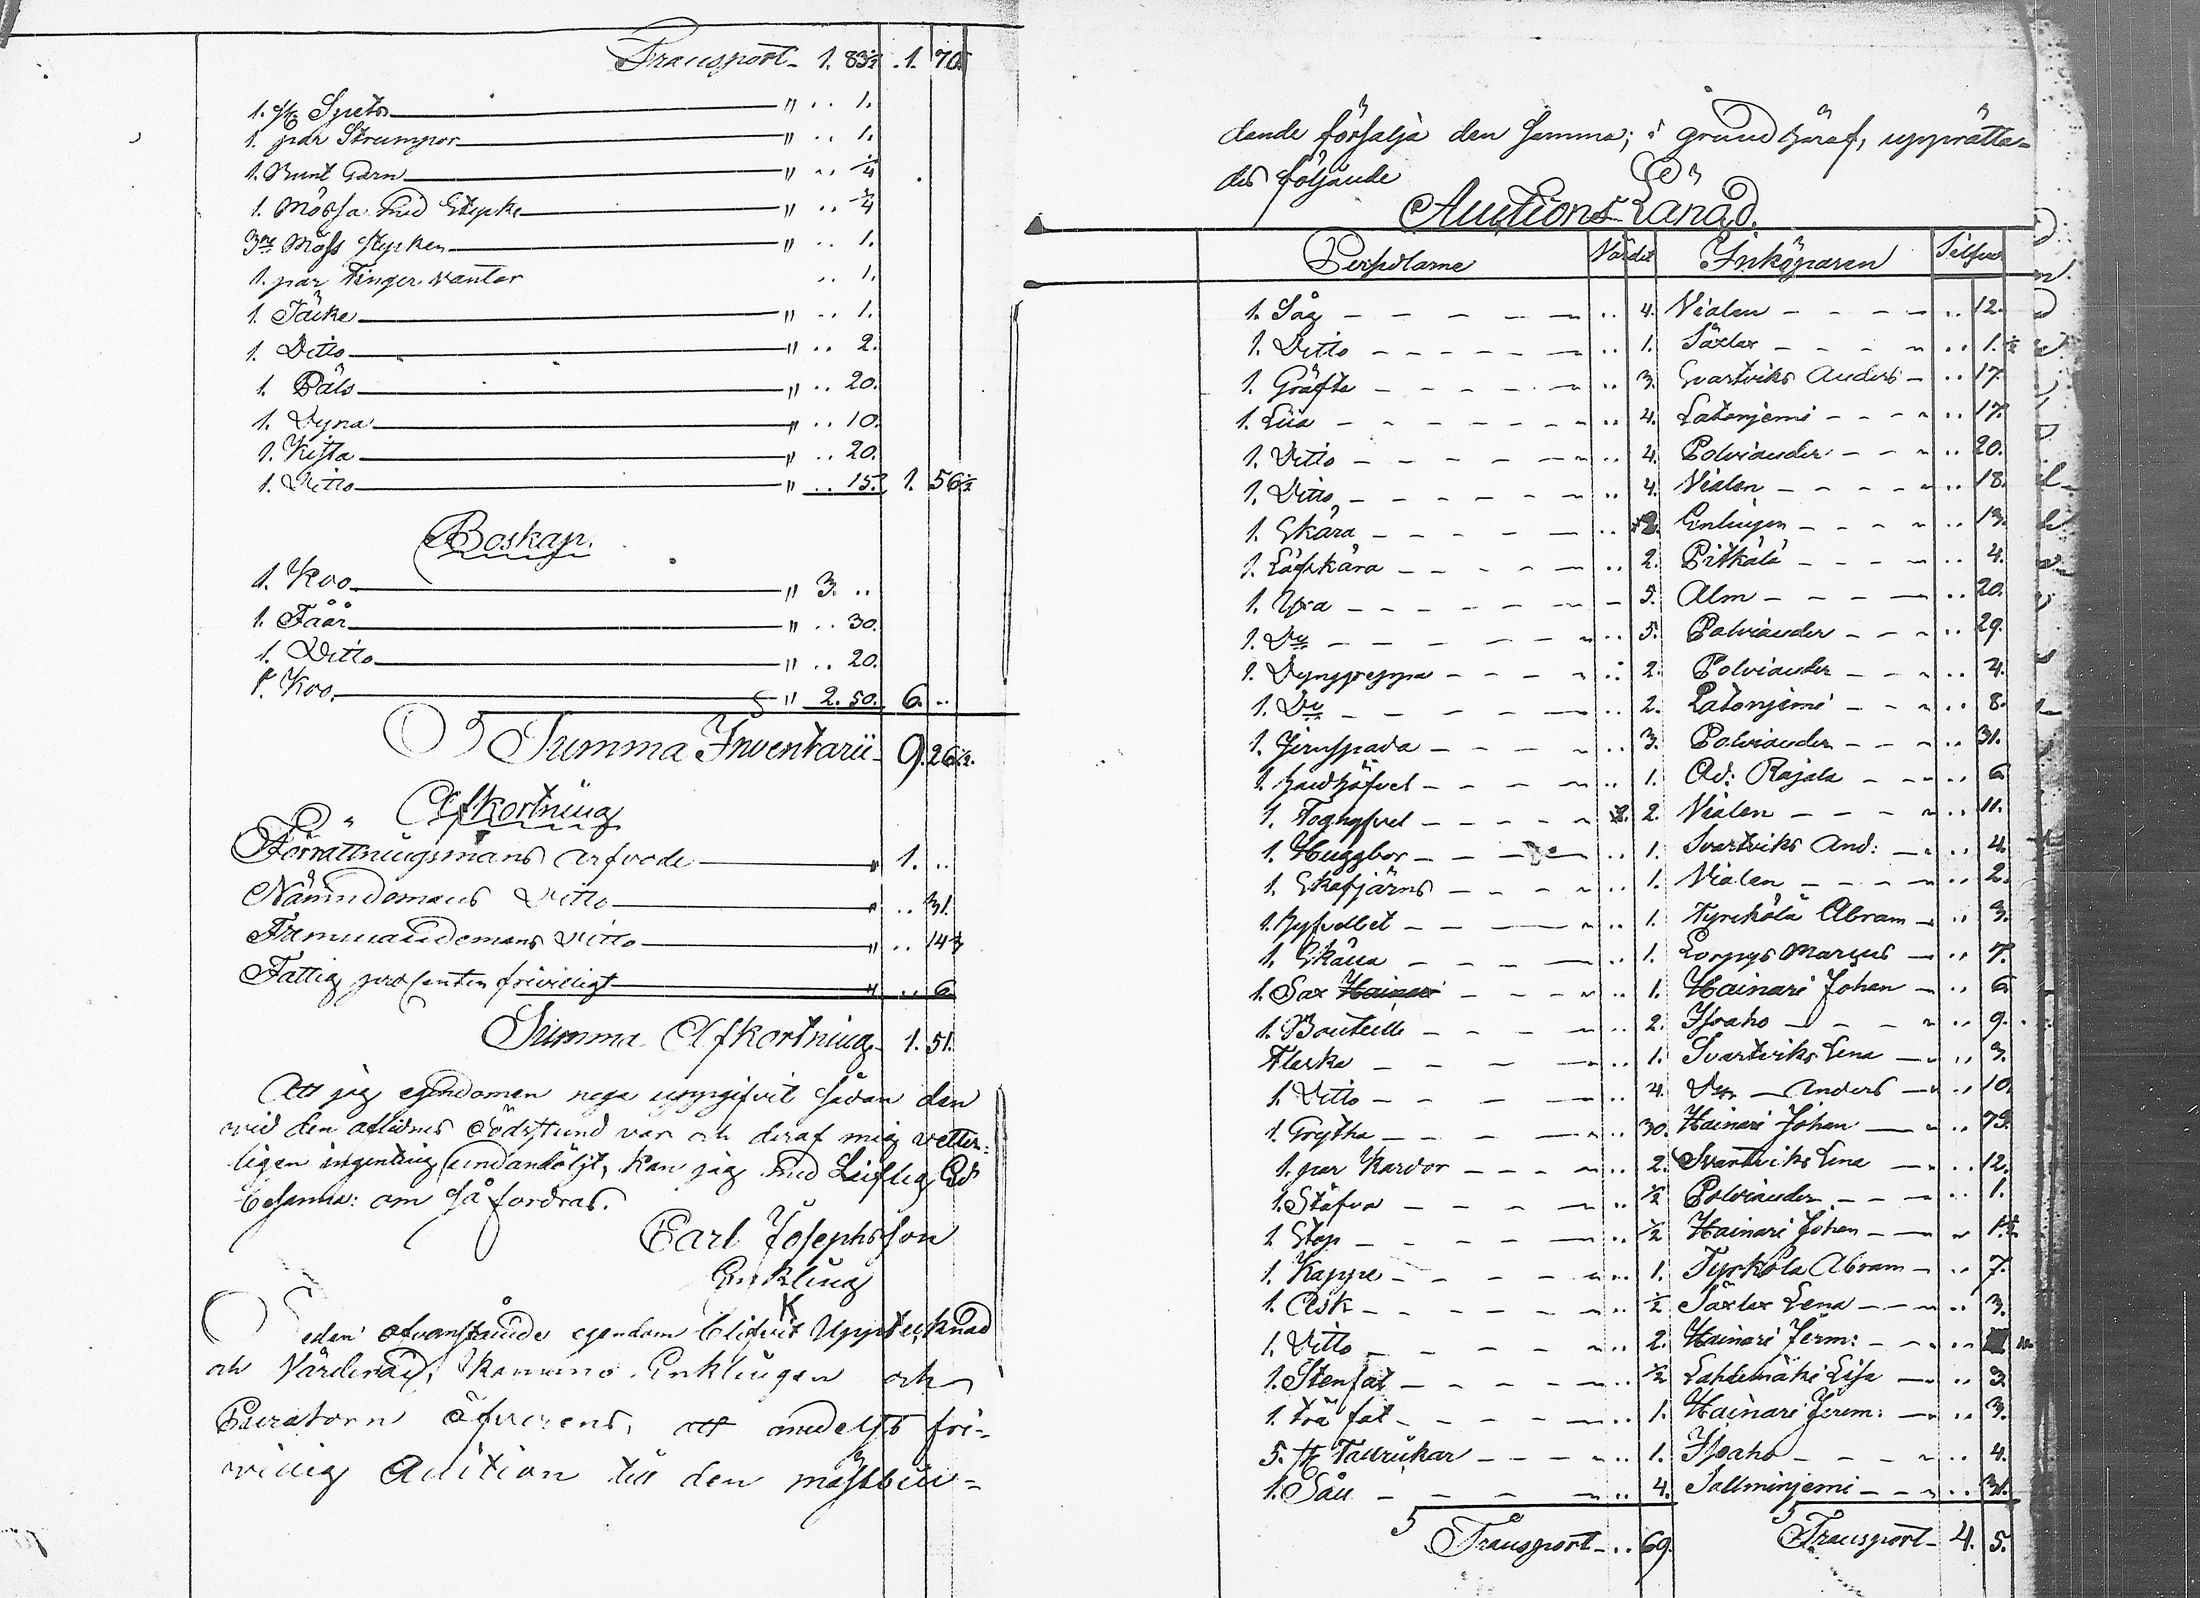 Transport 1. 83½ . 1. 70.
1. st. Spets " .. 1.
1. par Strumpor " .. 1.
1. Bunt Garn " .. ¼
1. Mössa med Stycke " .. ¾
3ne Möss stycken " .. 1.
1. par Finger vantar .. 1.
1. Täcke " .. 1.
1. Ditto " .. 2.
1. Päls " .. 20.
1. Dyna " .. 10.
1. Kista " .. 20.
1. Ditto " .. 15. 1. 56½
Boskap.
1. Koo " 3. ..
1. Fåår " .. 30.
1. Ditto " .. 20.
1. Koo " 2. 50. 6. ..
Summa Inventarii 9. 26½.
Afkortning
Förrättningsmans arfvode " 1. ..
Nämndemans Ditto " .. 31.
Fremmandemans Ditto " .. 14½
Fattig pro senten frivilligt " .. 6.
Summa Afkortning 1. 51.
Att jag egendomen noga uppgifvit sådan den
wid den aflidnes Dödsstund var och deraf mig vetter-
ligen ingenting undandöljt, kan jag med Liiflig Ed
besanna: om så fordras.
Carl Josephsson
Enkling
Sedan ofvanstående egendom blifvit Upptecknad
och Värderad, kommo Enklingen och
Curatorn öfverens, att medelst fri-
villig Auction till den mäst biu-
dande försälja den samma; i grund häraf, upprätta-
des följande
Auctions Längd.
Persedlarne Värdet Inköparen Silfver
1. Såg .. 4. Vialen .. 12.
1. Ditto .. 1. Särlax .. 1.½
1. Gräfta .. 3. Svartviks Anders .. 17.
1. Liia .. 4. Latonjemi .. 17.
1. Ditto .. 4. Polviander .. 20.
1. Ditto .. 4. Vialen .. 18.
1. Skära .. 2. Enlingen .. 13.
1. Löfskära .. 2. Pitkälä .. 4.
1. Yxa 5. Alm .. 20.
1. Do .. 5. Polviander .. 29.
1. Dynggreppa .. 2. Polviander .. 4.
1. Do .. 2. Latonjemi .. 8.
1. Jernspada .. 3. Polviander .. 31.
1. .. 1. Ad: Rajala .. 6.
1. 2. Vialen .. 11.
1. Huggbor .. 1. Svartviks And: .. 4.
1. Skafjärns .. 1. Vialen .. 2.
1. .. 1. Tyrckölä Abram .. 3.
1. .. 1. Loppys Marcus .. 7.
1. Sax Hainari .. 1. Hainari Johan .. 6.
1. Bouteille .. 2. Isoaho .. 9.
Flaska .. 1. Svartviks Lena .. 3.
1. Ditto 4. Do Anders .. 10.
1. Grytha .. 30. Hainari Johan .. 79.
1. par Kardor .. 2. Svartviks Lena .. 12.
1. Stäfva .. ½ Polviander .. 1.
1 Stop .. ½ Hainari Johan 1.½
1. Kappe .. 1. Tyrkölä Abram .. 7.
1. Ask .. ½ Särlax Lena .. 3.
1. Ditto .. 2. Hainari Jerm:
1. Stenfat .. ½ Lahtemäki Lisa .. 3.
1. trä fat .. 1. Hainari Jerem: .. 3.
5. st. Tallrikar .. 1. Isoaho .. 4.
1. Såll .. 4. Sallminjemi .. 31.
Transport .. 69. Transport 4. 5.